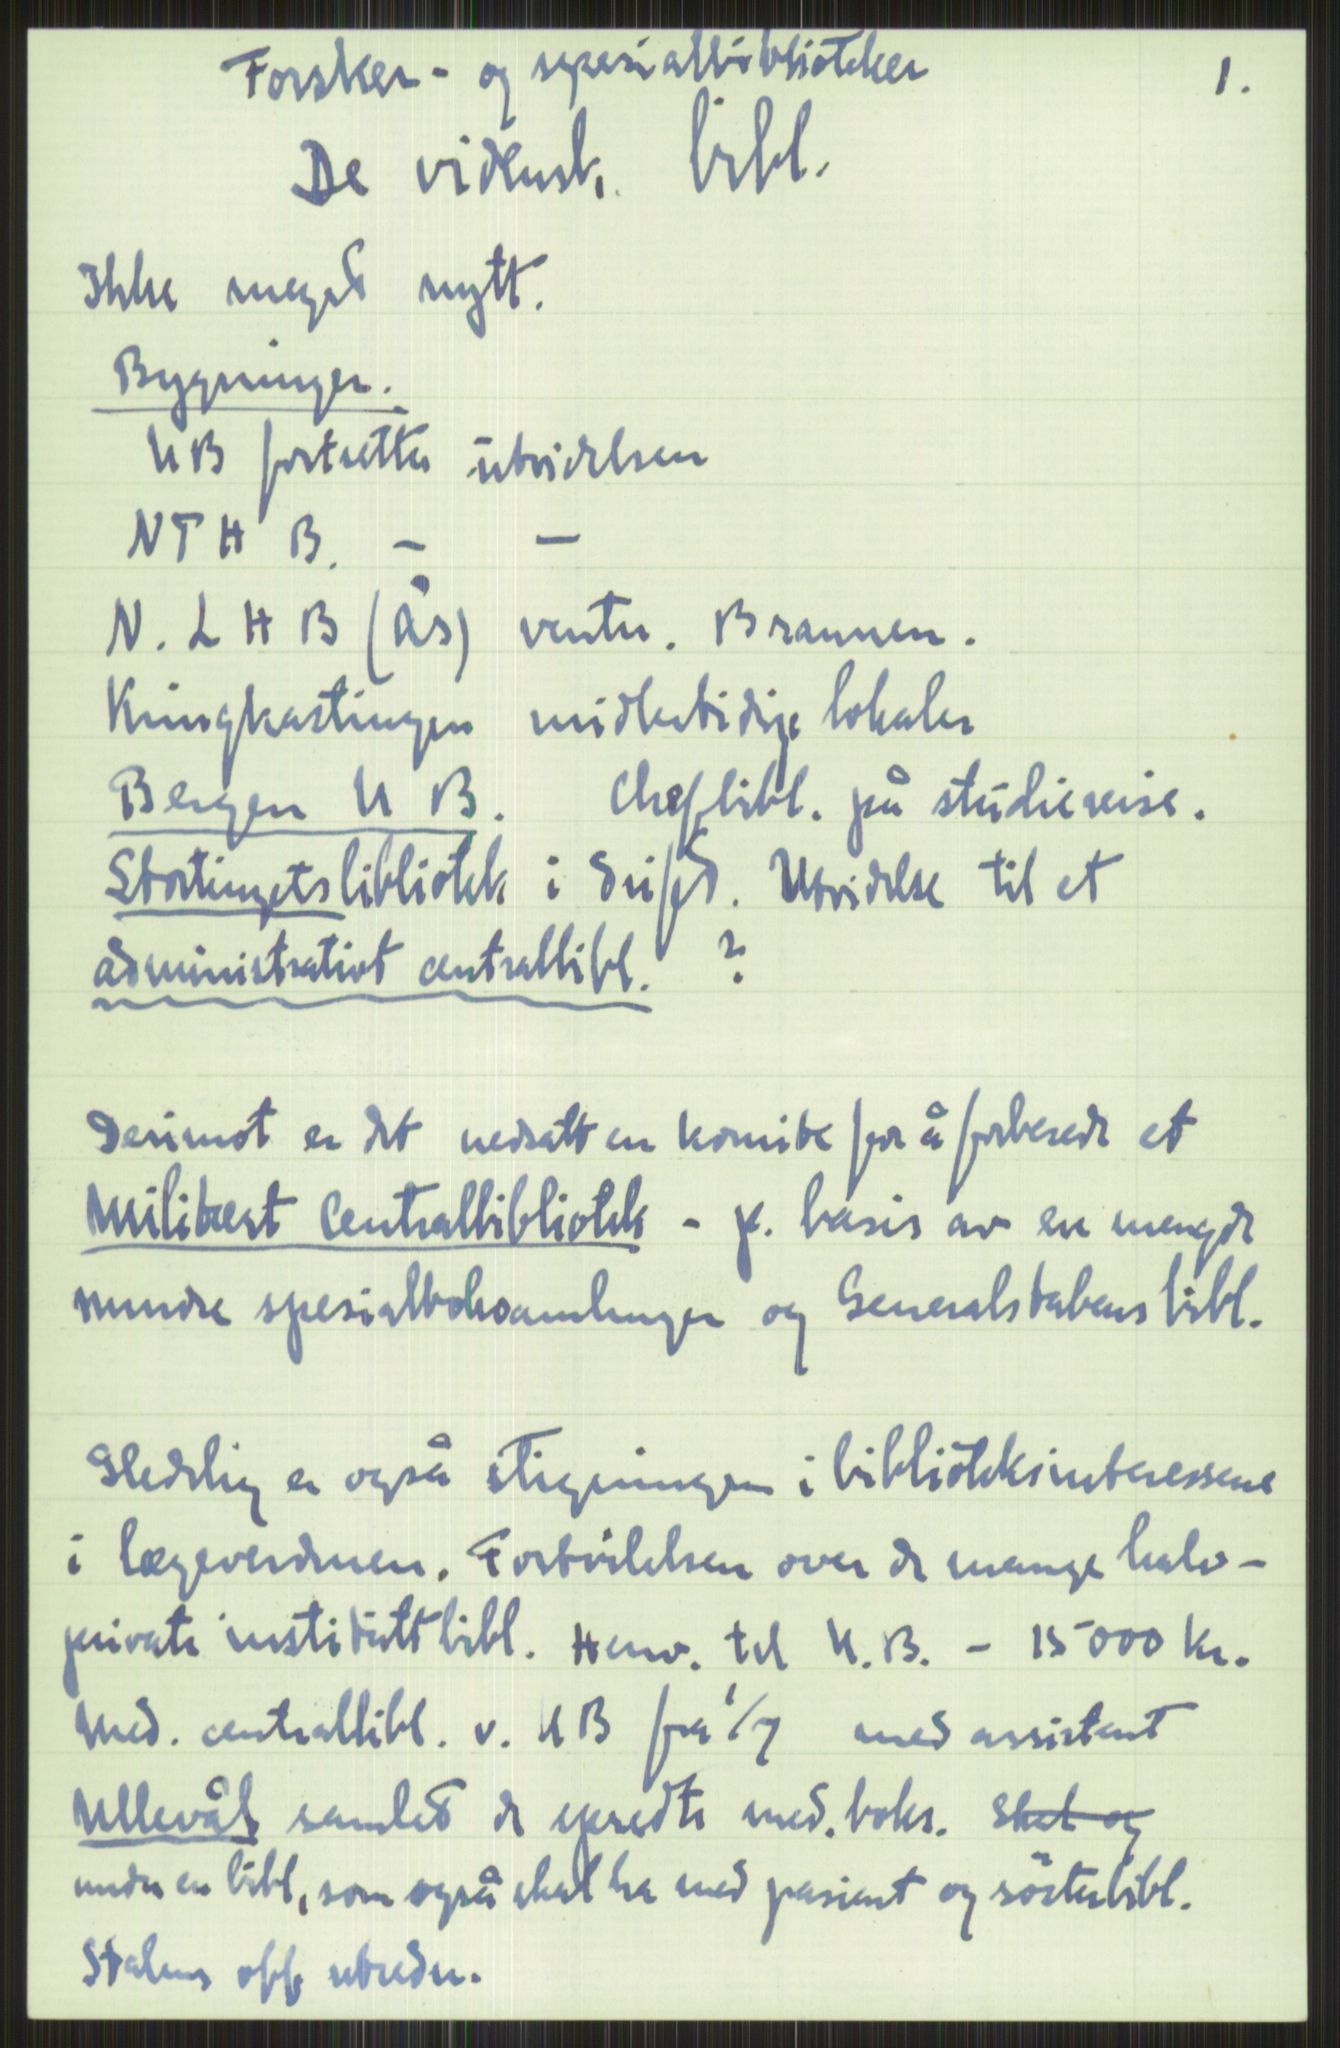 Forsker- og spesialbiblioteker
1.
De vidensk. bibl.
Ikke meget nytt.
Bygninger.
UB fortsetter utvidelsen
NTH B. - -
N. L H B (Ås) venter. Brannen.
Kringkastingen midlertidige lokaler
Bergen U B. Chefbibl. på studiereise.
Stortingets bibliotek i drift. Utvidelse til et
administrativt centralbibl. ?
Derimot er det nedsatt en komite for å forberede et
Militært Centralbibliotek - p. basis av en mengde
mindre spesialboksamlinger og Generalstabens bibl.
Gledelig er også stigningen i biblioteksinteressene
i lægeverdenen. Fortvilelsen over de mange halv-
private instituttbibl. Henv. til U.B. - 15000 kr.
Med. centralbibl. v. UB fra 1/7 med assistent
Ullevål samlet de spredte med. boks. Skal og
under en bibl, som også skal ha med pasient og søsterbibl.
Statens off utreder.